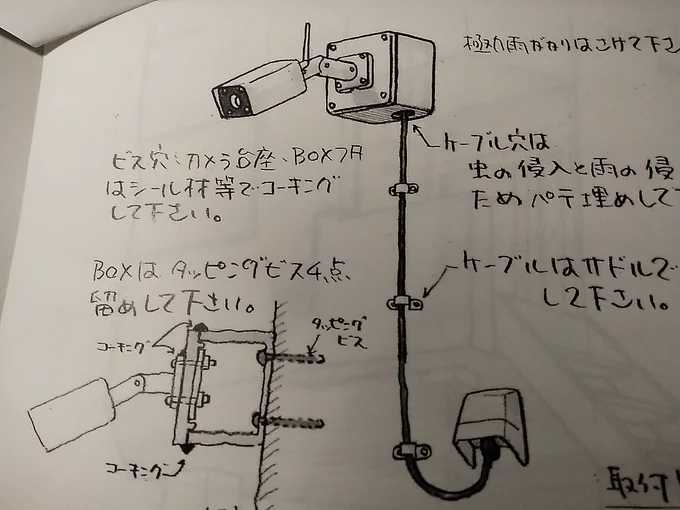 極力雨がかりはさけて下さ
ケーブル穴は
虫の侵入と雨の侵
ためパテ埋めして
ビス穴、カメラ台座、BOXフタ
はシール材等でコーキング
して下さい。
BOXは タッピングビス4点
留めして下さい。
ケーブルはサドルで
して下さい。
コーキング
タッピング
ビス
コーキング
取付